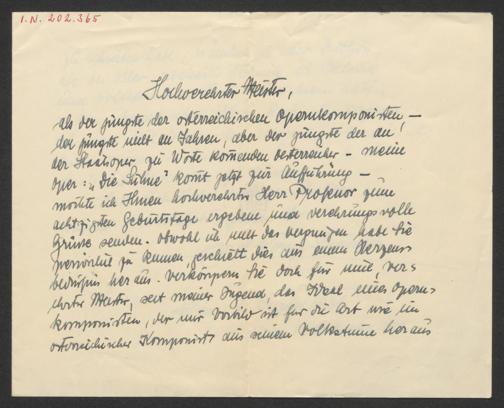 I.N. 202.365
Hochverehrter Meister,
als der jüngste der österreichischen Opernkomponisten —
der jüngste nicht an Jahren, aber der jüngste der an
der Staatsoper zu Worte komenden Oesterreicher — meine
Oper: „Die Sühne" komt jetzt zur Aufführung —
möchte ich Ihnen hochverehrter Herr Professor zum
achtzigsten Geburtstage ergebene und verehrungsvolle
Grüsse senden. Obwohl ich nicht das Vergnügen habe Sie
persönlich zu kennen geschieht dies aus einem Herzens=
bedürfnis heraus. Verkörpern Sie doch für mich, ver=
ehrter Meister, seit meiner Jugend, das Ideal eines Opern=
komponisten, der mir Vorbild ist für die Art wie ein
österreichischer Komponist aus seinem Volkstume heraus